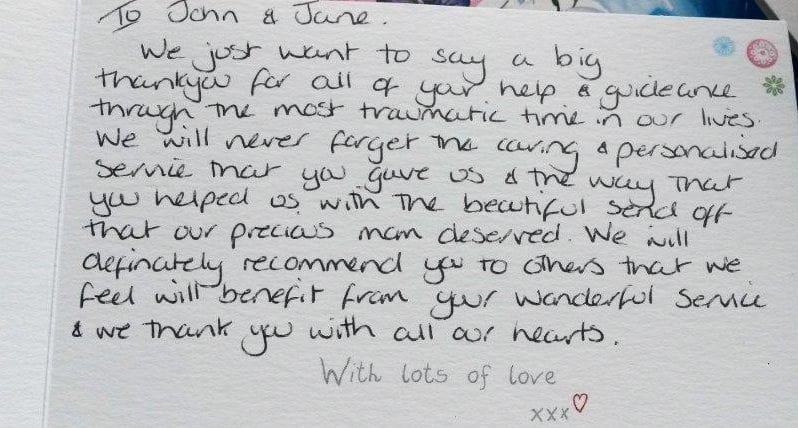 To John & Jane.
We just want to say a big
thankyou for all of your help & guideance
through the most traumatic time in our lives.
We will never forget the caring & personalised
service that you gave us & the way that
you helped us with the beautiful send off
that our precious mam deserved. We will
definately recommend you to others that we
feel will benefit from your wonderful service
& we thank you with all our hearts.
With lots of love
xxx♡